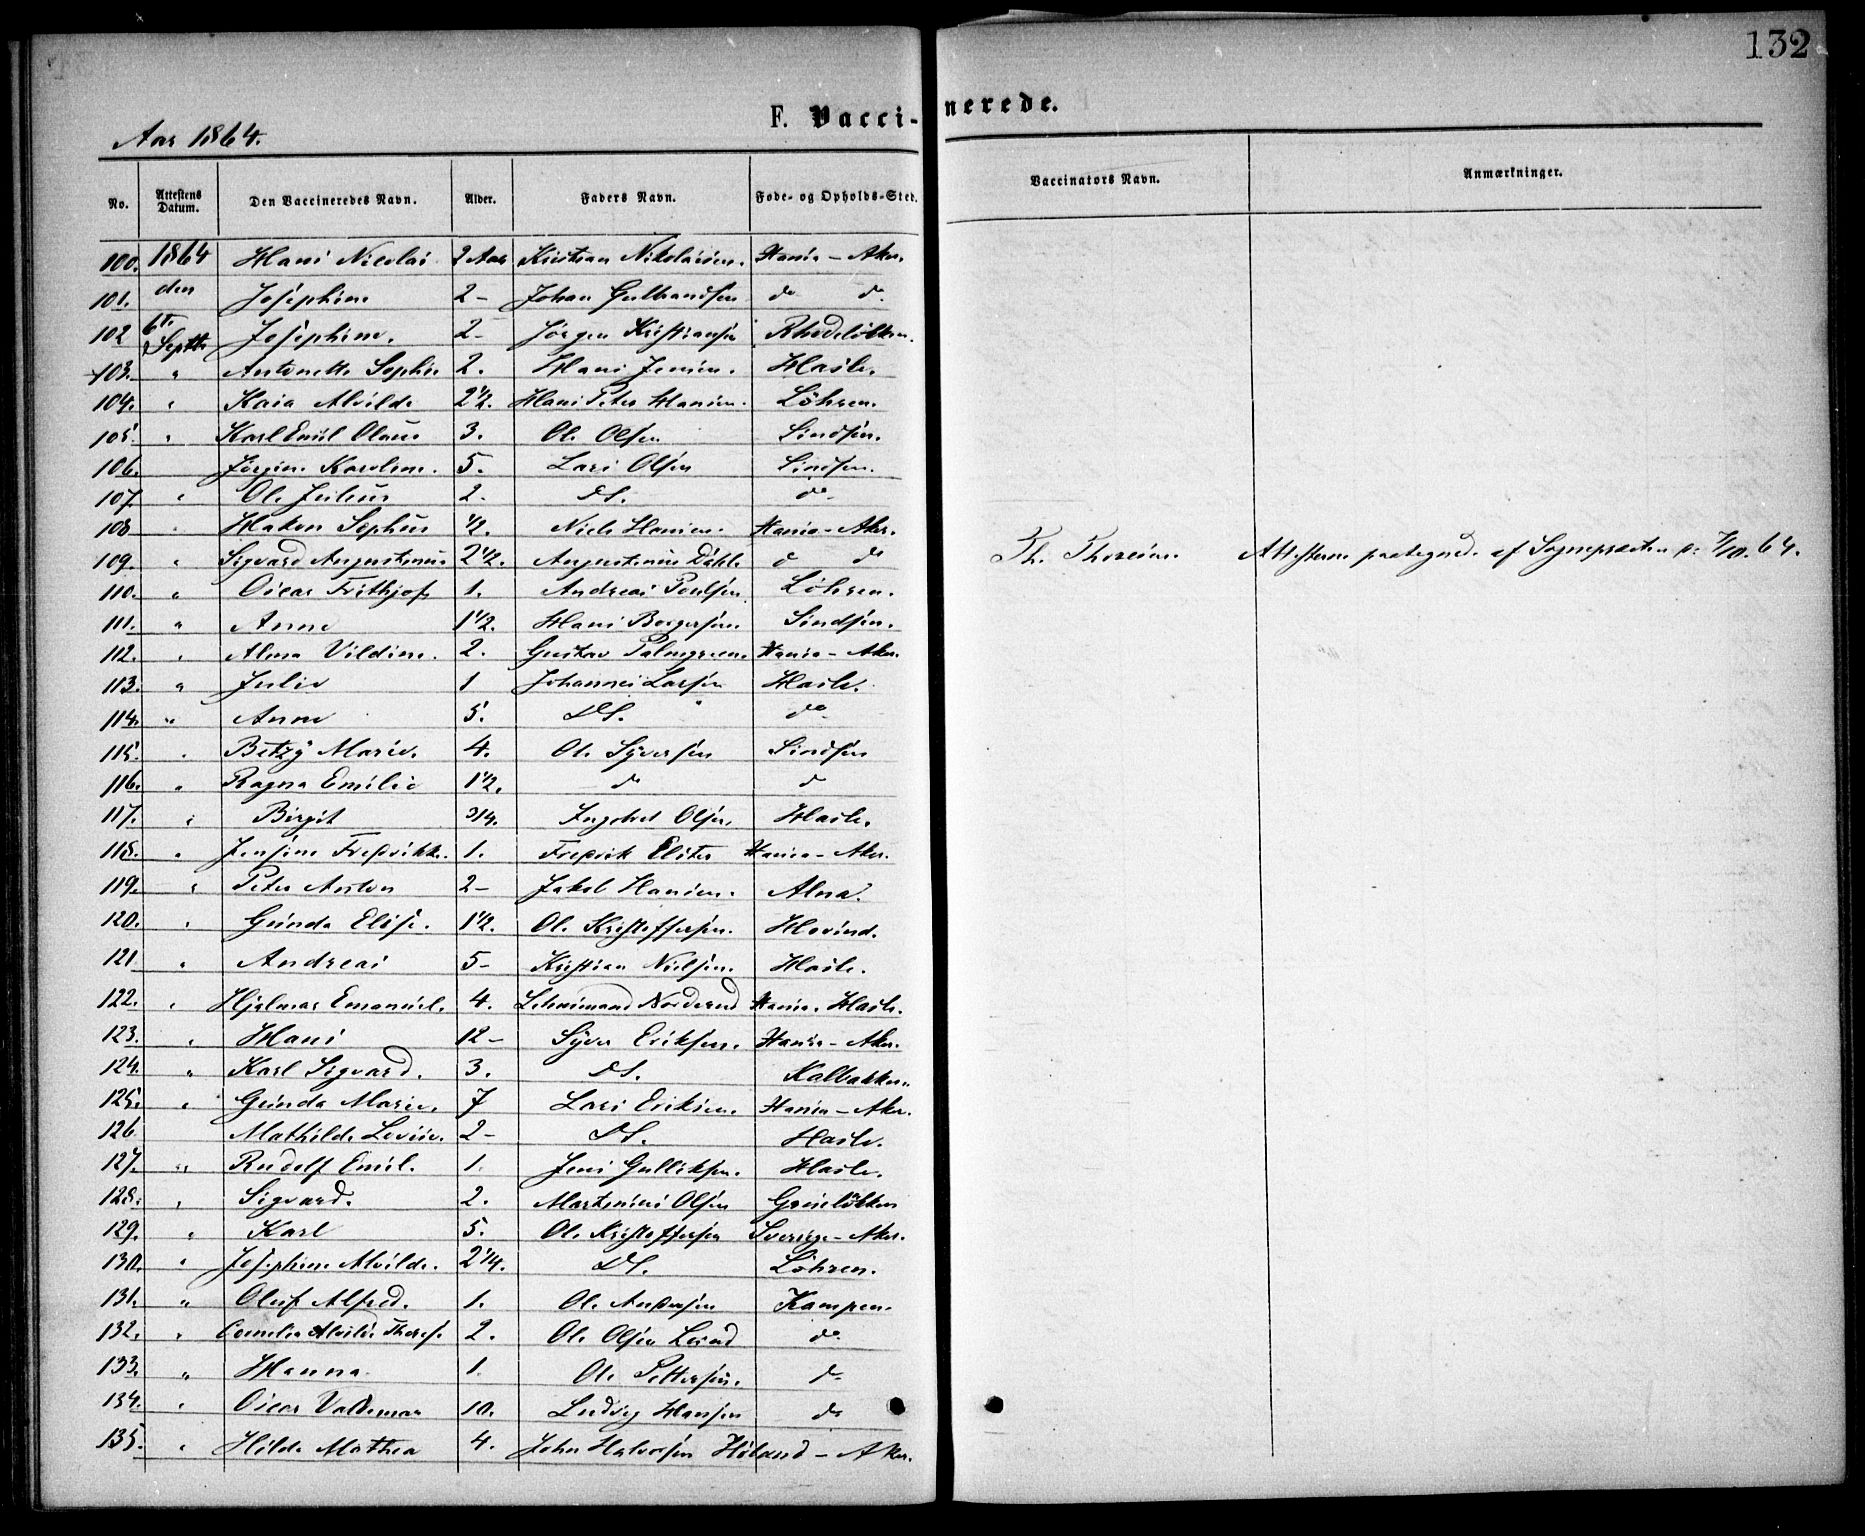 132
F. Vaccinerede.
Aar 1864.
No. Attestens Datum. Den Vaccineredes Navn. Alder. Faders Navn. Føde- og Opholds-Sted. Vaccinators Navn. Anmærkninger.
100. 1864 Hans Nicolai 2 Aar Kristian Nikolaisen. Xania - Aker.
101. den Josephine 2 - Johan Gulbrandsen do do.
102 6te Septbr Josephine. 2 - Jørgen Kristiansen Rhodeløkken.
103. " Antonette Sophie 2. Hans Jensen. Hasle.
104. " Kaia Alvilde 2 1/2. Hans Peter Hansen. Løhren.
105. " Karl Emil Olaus 3. Ole Olsen Sindsen.
106. Jørgine Karoline. 5. Lars Olsen Sindsen.
107. " Ole Julius 2. DS. do
108 " Hakon Sophus 1/2. Niels Hansen. Xania - Aker.
109. " Sigvard Augustinus 2 1/2. Augustinus Dahl. d do Th. Thoresen. Attesterne paategnede af Sognepræsten d: 7/10. 64.
110. " Oscar Frithjof 1. Andreas Poulsen Løhren.
111. " Anne 1 1/2. Hans Borgersen. Sindsen.
112. " Alma Vildine. 2. Gustav Palmgreen Xania - Aker.
113. " Julie 1 Johannes Larsen Hasle.
114. " Anne 5. DS. " do
115. " Betzy Marie. 4. Ole Syversen Sindsen
116. " Ragna Emilie 1 1/2. do d
117. " Birgit 3/4. Ingebret Olsen. Hasle.
118. " Jensine Fredrikke. 1. Fredrik Elster Xania - Aker.
119. " Peter Anton 2 - Jakob Hansen. Alna.
120. " Gunda Elise. 1 1/2. Ole Kristoffersen. Hovind.
121 " Andreas 5 - Kristian Nielsen. Hasle.
122. " Hjalmar Emanuel. 4. Norderud Xania. Hasle.
123. " Hans 12 - Syver Eriksen. Xania - Aker.
124. " Karl Sigvard. 3. DS. Kalbakken.
125. " Gunda Marie. 7 Lars Eriksen. Xania - Aker.
126 Mathilde Lovise. 2 - DS. Hasle.
127. " Rudolf Emil. 1. Jens Gulliksen. Hasle.
128. " Sigvard. 2. Martinius Olsen Grøneløkken
129. " Karl 5. Ole Kristoffersen Sverige - Aker.
130. " Josephine Alvilde. 2 1/4. DS. Løhren.
131. " Oluf Alfred. 1. Ole Andersen Kampen.
132. " Cornelia Alvilde Therese. 2. Ole Olsen Lund do.
133. " Hanna 1. Ole Pettersen. do
134. " Oscar Valdemar 10. Ludvig Hansen do
135. " Hilda Mathea 4. John Halvorsen Høland - Aker.